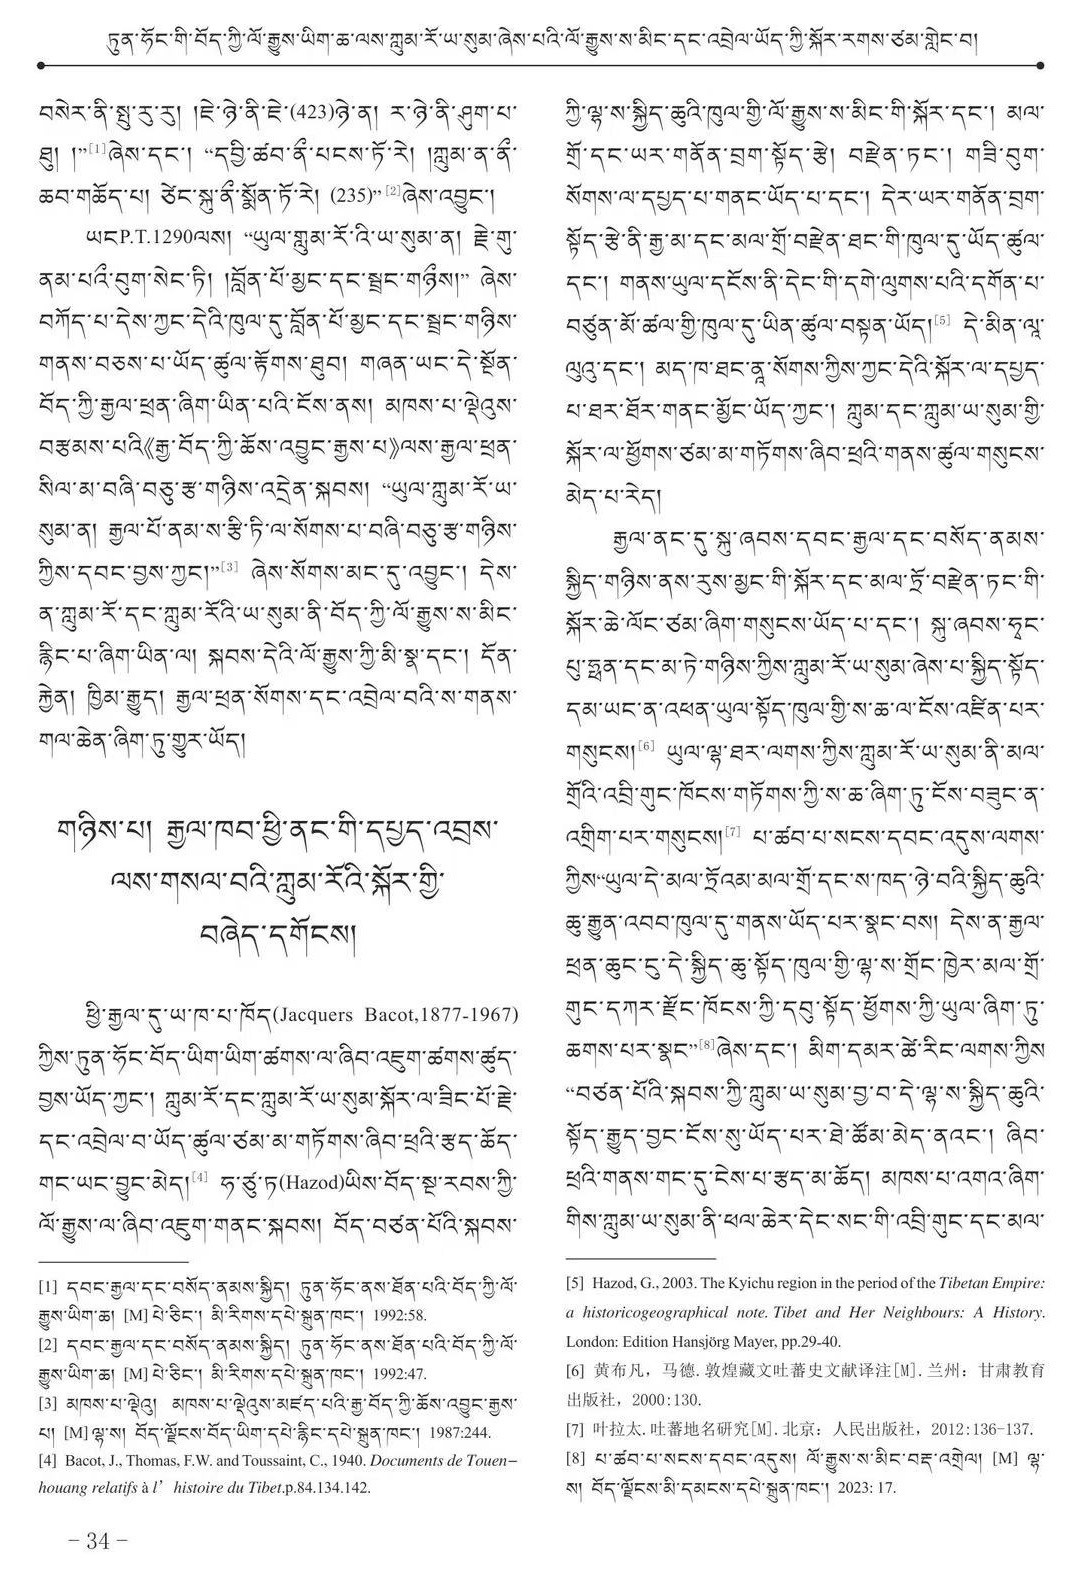 ཏུན་ཧོང་གི་བོད་ཀྱི་ལོ་རྒྱུས་ཡིག་ཆ་ལས་ཀླུམ་རོ་ཡ་སུམ་ཞེས་པའི་ལོ་རྒྱུས་ས་མིང་དང་འབྲེལ་ཡོད་ཀྱི་སྐོར་རགས་ཙམ་གླེང་བ།
བསེར་ནི་སྤུ་རུ་རུ། །ཇེ་ཉེ་ནི་ཇེ་(423)ཉེ་ན། ར་ཉེ་ནི་ཤུག་པ་
ཤུ། །”[1]ཞེས་དང་། “དབྱི་ཚབ་ནཱི་པངས་ཏོ་རེ། །ཀླུམ་ན་ནཱི་
ཆབ་གཆོད་པ། ཙེང་སྐུ་ནཱི་སྨོན་ཏོ་རེ། (235)” [2]ཞེས་འབྱུང་།
ཡངP.T.1290ལས། “ཡུལ་གླུམ་རོ་འི་ཡ་སུམ་ན། རྗེ་གུ་
ནམ་པའི་བུག་སེང་ཏི། །བློན་པོ་མྱང་དང་སྦྲང་གཉིས།” ཞེས་
བཀོད་པ་དེས་ཀྱང་དེའི་ཁུལ་དུ་བློན་པོ་མྱང་དང་སྦྲང་གཉིས་
གནས་བཅས་པ་ཡོད་ཚུལ་རྟོགས་ཐུབ། གཞན་ཡང་དེ་སྔོན་
བོད་ཀྱི་རྒྱལ་ཕྲན་ཞིག་ཡིན་པའི་ངོས་ནས། མཁས་པ་ལྡེའུས་
བརྩམས་པའི《རྒྱ་བོད་ཀྱི་ཆོས་འབྱུང་རྒྱས་པ》ལས་རྒྱལ་ཕྲན་
སིལ་མ་བཞི་བཅུ་རྩ་གཉིས་འདྲེན་སྐབས། “ཡུལ་ཀླུམ་རོ་ཡ་
སུམ་ན། རྒྱལ་པོ་ནམ་ས་རྩི་ཏི་ལ་སོགས་པ་བཞི་བཅུ་རྩ་གཉིས་
ཀྱིས་དབང་བྱས་ཀྱང་།”[3] ཞེས་སོགས་མང་དུ་འབྱུང་། དེས་
ན་ཀླུམ་རོ་དང་ཀླུམ་རོའི་ཡ་སུམ་ནི་བོད་ཀྱི་ལོ་རྒྱུས་ས་མིང་
རྙིང་པ་ཞིག་ཡིན་ལ། སྐབས་དེའི་ལོ་རྒྱུས་ཀྱི་མི་སྣ་དང་། དོན་
རྐྱེན། ཁྱིམ་རྒྱུད། རྒྱལ་ཕྲན་སོགས་དང་འབྲེལ་བའི་ས་གནས་
གལ་ཆེན་ཞིག་ཏུ་གྱུར་ཡོད།
གཉིས་པ། རྒྱལ་ཁབ་ཕྱི་ནང་གི་དཔྱད་འབྲས་
ལས་གསལ་བའི་ཀླུམ་རོའི་སྐོར་གྱི་
བཞེད་དགོངས།
ཕྱི་རྒྱལ་དུ་ཡ་ཁ་པ་ཁོད(Jacquers Bacot,1877-1967)
ཀྱིས་ཏུན་ཧོང་བོད་ཡིག་ཡིག་ཚགས་ལ་ཞིབ་འཇུག་ཚགས་ཚུད་
བྱས་ཡོད་ཀྱང་། ཀླུམ་རོ་དང་ཀླུམ་རོ་ཡ་སུམ་སྐོར་ལ་ཟིང་པོ་རྗེ་
དང་འབྲེལ་བ་ཡོད་ཚུལ་ཙམ་མ་གཏོགས་ཞིབ་ཕྲའི་རྩད་ཆོད་
གང་ཡང་བྱུང་མེད།[4] ཧ་ཙུ་ཏ(Hazod)ཡིས་བོད་སྔ་རབས་ཀྱི་
ལོ་རྒྱུས་ལ་ཞིབ་འཇུག་གནང་སྐབས། བོད་བཙན་པོའི་སྐབས་
[1] དབང་རྒྱལ་དང་བསོད་ནམས་སྐྱིད། ཏུན་ཧོང་ནས་ཐོན་པའི་བོད་ཀྱི་ལོ་
རྒྱུས་ཡིག་ཆ། [M] པེ་ཅིང་། མི་རིགས་དཔེ་སྐྲུན་ཁང་། 1992:58.
[2] དབང་རྒྱལ་དང་བསོད་ནམས་སྐྱིད། ཏུན་ཧོང་ནས་ཐོན་པའི་བོད་ཀྱི་ལོ་
རྒྱུས་ཡིག་ཆ། [M] པེ་ཅིང་། མི་རིགས་དཔེ་སྐྲུན་ཁང་། 1992:47.
[3] མཁས་པ་ལྡེའུ། མཁས་པ་ལྡེའུས་མཛད་པའི་རྒྱ་བོད་ཀྱི་ཆོས་འབྱུང་རྒྱས་
པ། [M] ལྷ་ས། བོད་ལྗོངས་བོད་ཡིག་དཔེ་རྙིང་དཔེ་སྐྲུན་ཁང་། 1987:244.
[4] Bacot, J., Thomas, F.W. and Toussaint, C., 1940. Documents de Touen-
houang relatifs à l’histoire du Tibet.p.84.134.142.
ཀྱི་ལྷ་ས་སྐྱིད་ཆུའི་ཁུལ་གྱི་ལོ་རྒྱུས་ས་མིང་གི་སྐོར་དང་། མལ་
གྲོ་དང་ཡར་གནོན་བྲག་སྟོད་རྩེ། བརྫེན་ཏང་། གཟི་བུག་
སོགས་ལ་དཔྱད་པ་གནང་ཡོད་པ་དང་། དེར་ཡར་གནོན་བྲག་
སྟོད་རྩེ་ནི་རྒྱ་མ་དང་མལ་གྲོ་བརྫེན་ཐང་གི་ཁུལ་དུ་ཡོད་ཚུལ་
དང་། གནས་ཡུལ་དངོས་ནི་དེང་གི་དགེ་ལུགས་པའི་དགོན་པ་
བཙུན་མོ་ཚལ་གྱི་ཁུལ་དུ་ཡིན་ཚུལ་བསྟན་ཡོད།[5] དེ་མིན་ལཱ་
ལུའུ་དང་། མད་ཁ་ཐང་ནཱ་སོགས་ཀྱིས་ཀྱང་དེའི་སྐོར་ལ་དཔྱད་
པ་ཐར་ཐོར་གནང་མྱོང་ཡོད་ཀྱང་། ཀླུམ་དང་ཀླུམ་ཡ་སུམ་གྱི་
སྐོར་ལ་ཕྱོགས་ཙམ་མ་གཏོགས་ཞིབ་ཕྲའི་གནས་ཚུལ་གསུངས་
མེད་པ་རེད།
རྒྱལ་ནང་དུ་སྐུ་ཞབས་དབང་རྒྱལ་དང་བསོད་ནམས་
སྐྱིད་གཉིས་ནས་རུས་མྱང་གི་སྐོར་དང་མལ་ཏྲོ་བརྫེན་ཏང་གི་
སྐོར་ཆེ་ལོང་ཙམ་ཞིག་གསུངས་ཡོད་པ་དང་། སྐུ་ཞབས་ཧྭང་
པུ་ཧྥན་དང་མ་ཏེ་གཉིས་ཀྱིས་ཀླུམ་རོ་ཡ་སུམ་ཞེས་པ་སྐྱིད་སྟོད་
དམ་ཡང་ན་འཕན་ཡུལ་སྟོད་ཁུལ་གྱི་ས་ཆ་ལ་ངོས་འཛིན་པར་
གསུངས།[6] ཡུལ་ལྷ་ཐར་ལགས་ཀྱིས་ཀླུམ་རོ་ཡ་སུམ་ནི་མལ་
གྲོའི་འབྲི་གུང་ཁོངས་གཏོགས་ཀྱི་ས་ཆ་ཞིག་ཏུ་ངོས་བཟུང་ན་
འགྲིག་པར་གསུངས།[7] པ་ཚབ་པ་སངས་དབང་འདུས་ལགས་
ཀྱིས“ཡུལ་དེ་མལ་ཏྲོའམ་མལ་གྲོ་དང་ས་ཁད་ཉེ་བའི་སྐྱིད་ཆུའི་
ཆུ་རྒྱུན་འབབ་ཁུལ་དུ་གནས་ཡོད་པར་སྣང་བས། དེས་ན་རྒྱལ་
ཕྲན་ཆུང་ངུ་དེ་སྐྱིད་ཆུ་སྟོད་ཁུལ་གྱི་ལྷ་ས་གྲོང་ཁྱེར་མལ་གྲོ་
གུང་དཀར་རྫོང་ཁོངས་ཀྱི་དབུ་སྟོད་ཕྱོགས་ཀྱི་ཡུལ་ཞིག་ཏུ་
ཆགས་པར་སྣང”[8]ཞེས་དང་། མིག་དམར་ཚེ་རིང་ལགས་ཀྱིས
“བཙན་པོའི་སྐབས་ཀྱི་ཀླུམ་ཡ་སུམ་བྱ་བ་དེ་ལྷ་ས་སྐྱིད་ཆུའི་
སྟོད་རྒྱུད་བྱང་ངོས་སུ་ཡོད་པར་ཐེ་ཚོམ་མེད་ནའང་། ཞིབ་
ཕྲའི་གནས་གང་དུ་ངེས་པ་རྩད་མ་ཆོད། མཁས་པ་འགའ་ཞིག་
གིས་ཀླུམ་ཡ་སུམ་ནི་ཕལ་ཆེར་དེང་སང་གི་འབྲི་གུང་དང་མལ་
[5] Hazod, G., 2003. The Kyichu region in the period of the Tibetan Empire:
a historicogeographical note. Tibet and Her Neighbours: A History.
London: Edition Hansjörg Mayer, pp.29-40.
[6] 黄布凡，马德.敦煌藏文吐蕃史文献译注[M].兰州：甘肃教育
出版社，2000:130.
[7] 叶拉太.吐蕃地名研究[M].北京：人民出版社，2012:136-137.
[8] པ་ཚབ་པ་སངས་དབང་འདུས། ལོ་རྒྱུས་ས་མིང་བརྡ་འགྲེལ། [M] ལྷ་
ས། བོད་ལྗོངས་མི་དམངས་དཔེ་སྐྲུན་ཁང་། 2023: 17.
- 34 -